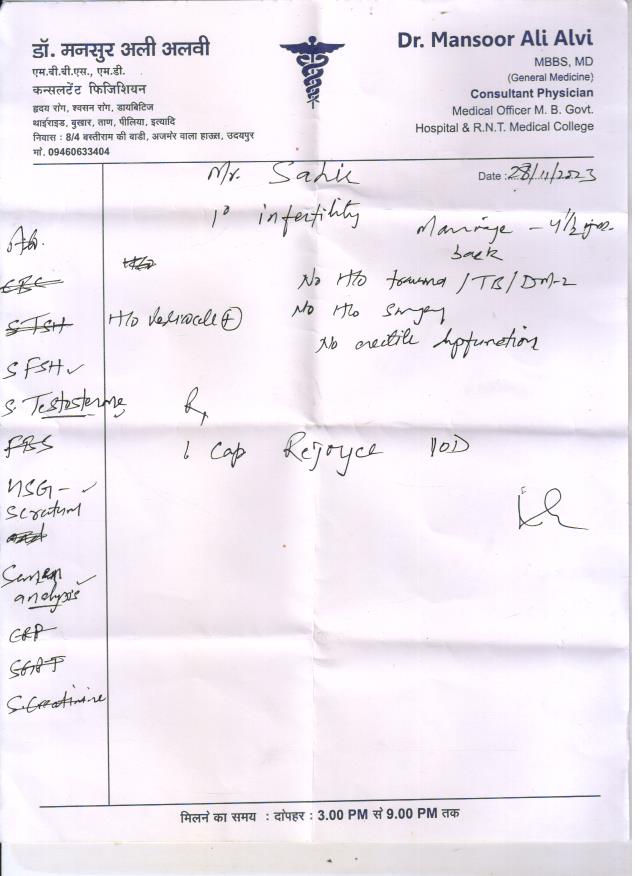 डॉ. मनसुर अली अलवी
एम.बी.बी.एस., एम.डी.
कन्सलटेंट फिजिशियन
हृदय रोग, श्वसन रोग, डायबिटिज
थाईराइड, बुखार, ताण, पीलिया, इत्यादि
निवास : 8/4 बस्तीराम की बाडी, अजमेर वाला हाउस, उदयपुर
मो. 09460633404
Dr. Mansoor Ali Alvi
MBBS, MD
(General Medicine)
Consultant Physician
Medical Officer M. B. Govt.
Hospital & R.N.T. Medical College
Date : 28/11/2023
Mr.
1° infertility
Marriage - 4 1/2 yrs.
back
No H/o trauma / TB / DM-2
H/o Varicocele (+)
No H/o Surgery
No erectile dysfunction
CBC
S TSH
S FSH ✓
S. Testosterone
FBS
USG - ✓
Scrotum
Semen ✓
analysis
CRP
SGPT
S. Creatinine
Rx
1 Cap Rejoyce 1OD
मिलने का समय : दोपहर : 3.00 PM से 9.00 PM तक